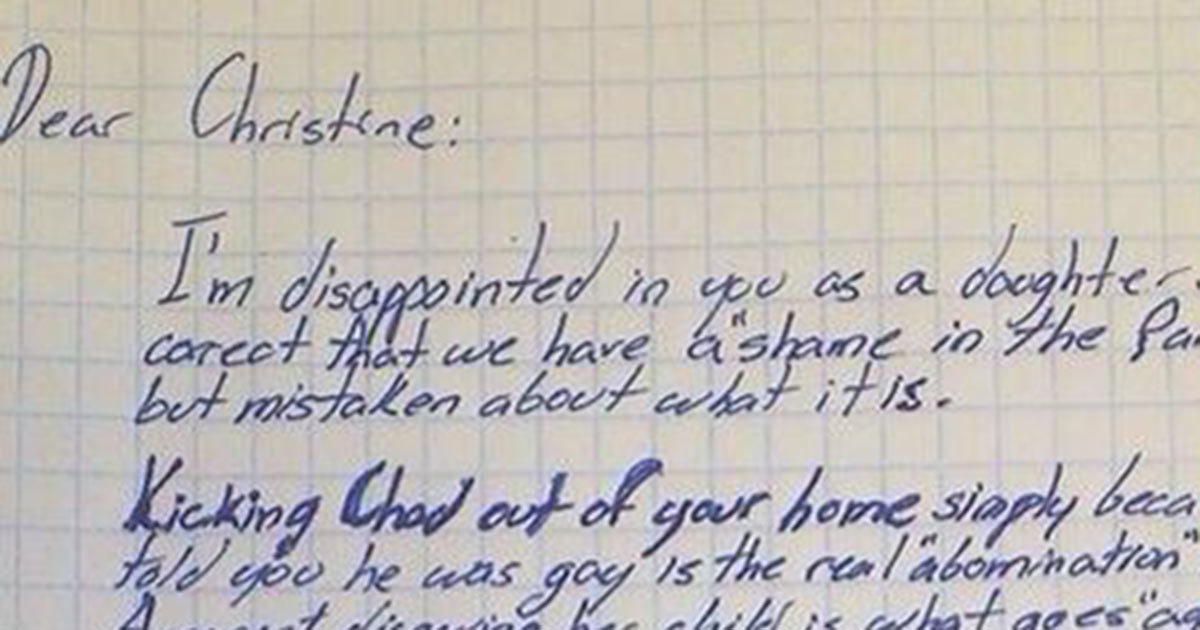 Dear Christine:
I'm disappointed in you as a daughter.
correct that we have a "shame in the
but mistaken about what it is.
Kicking Chad out of your home simply
told you he was gay is the real "abomination"
A parent disowning her child is what goes